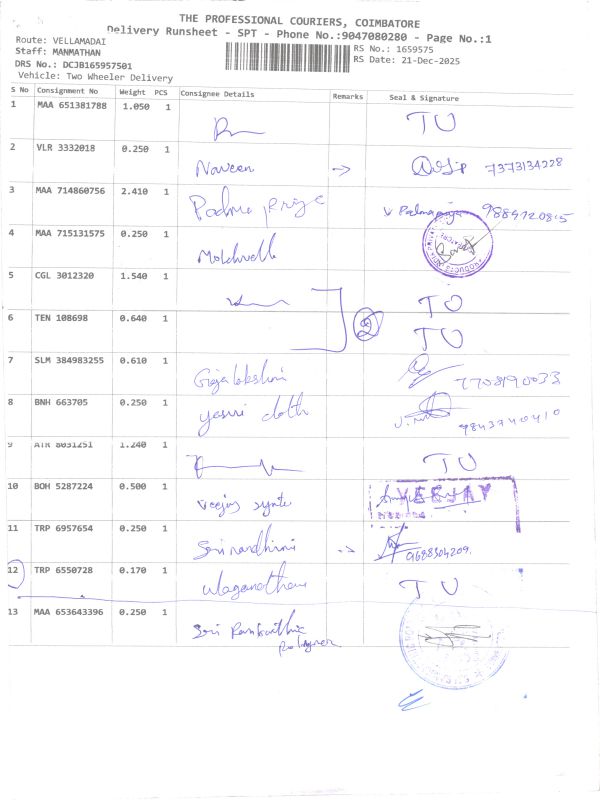 THE PROFESSIONAL COURIERS, COIMBATORE
Delivery Runsheet - SPT - Phone No.:9047080280 - Page No.:1
Route: VELLAMADAI
Staff: MANMATHAN
DRS No.: DCJB165957501
Vehicle: Two Wheeler Delivery
RS No.: 1659575
RS Date: 21-Dec-2025
S No Consignment No Weight PCS Consignee Details Remarks Seal & Signature
1 MAA 651381788 1.050 1
TU
2 VLR 3332018 0.250 1
Naveen → 7373134228
3 MAA 714860756 2.410 1
Padma priya Padmapriya 9884720815
4 MAA 715131575 0.250 1
5 CGL 3012320 1.540 1
TU
6 TEN 108698 0.640 1
2 TU
7 SLM 384983255 0.610 1
Gajalakshmi 7708190033
8 BNH 663705 0.250 1
yasni cloth 9843740410
9 ATR 8031251 1.240 1
TU
10 BOH 5287224 0.500 1
veejay synte VEEJAY
11 TRP 6957654 0.250 1
Srinandhini 9688304209.
12 TRP 6550728 0.170 1
ulaganathan TU
13 MAA 653643396 0.250 1
Sri